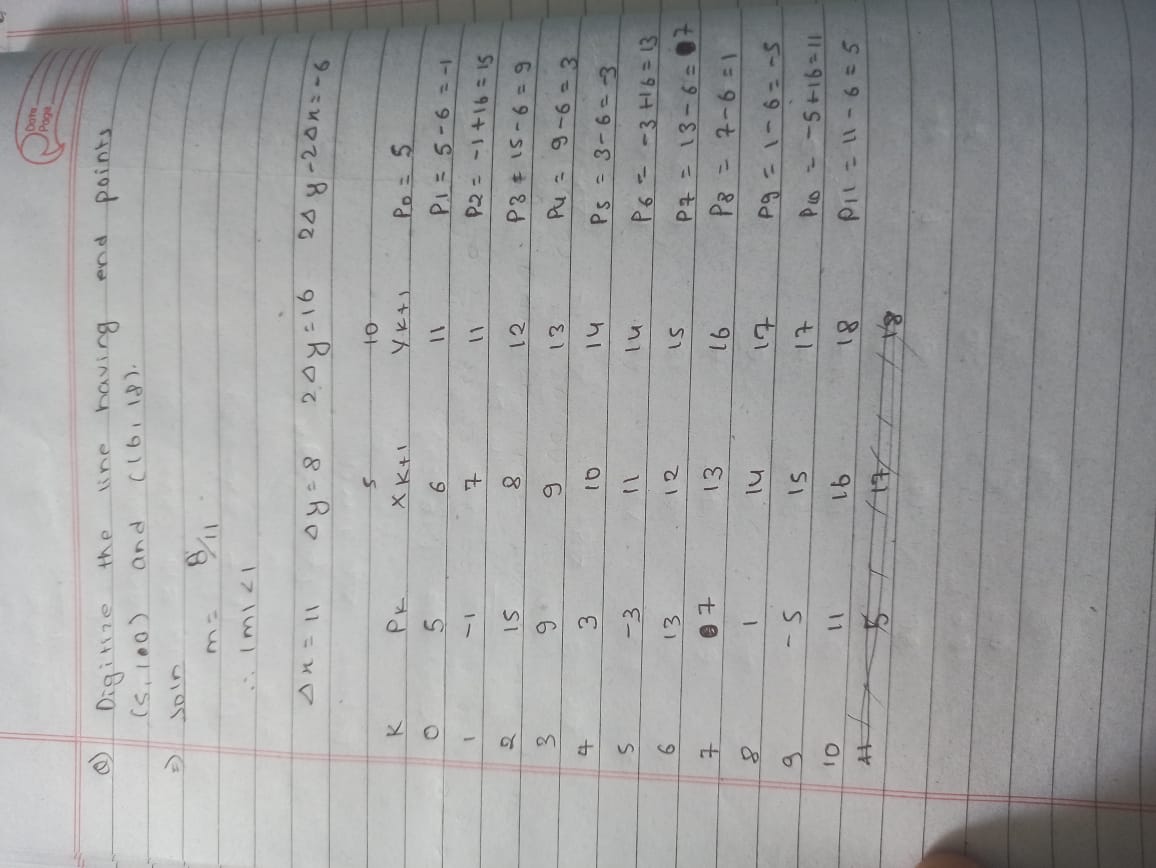 Date
Page
Q) Digitize the line having end points
(5,10) and (16,18).
=) Soln
m = 8/11
∴ |m| < 1
Δx = 11 Δy = 8 2Δy = 16 2Δy - 2Δx = -6
5 10
K PK XK+1 YK+1 P0 = 5
0 5 6 11 P1 = 5 - 6 = -1
1 -1 7 11 P2 = -1 + 16 = 15
2 15 8 12 P3 = 15 - 6 = 9
3 9 9 13 P4 = 9 - 6 = 3
4 3 10 14 P5 = 3 - 6 = -3
5 -3 11 14 P6 = -3 + 16 = 13
6 13 12 15 P7 = 13 - 6 = 7
7 7 13 16 P8 = 7 - 6 = 1
8 1 14 17 P9 = 1 - 6 = -5
9 -5 15 17 P10 = -5 + 16 = 11
10 11 16 18 P11 = 11 - 6 = 5
11 5 17 18